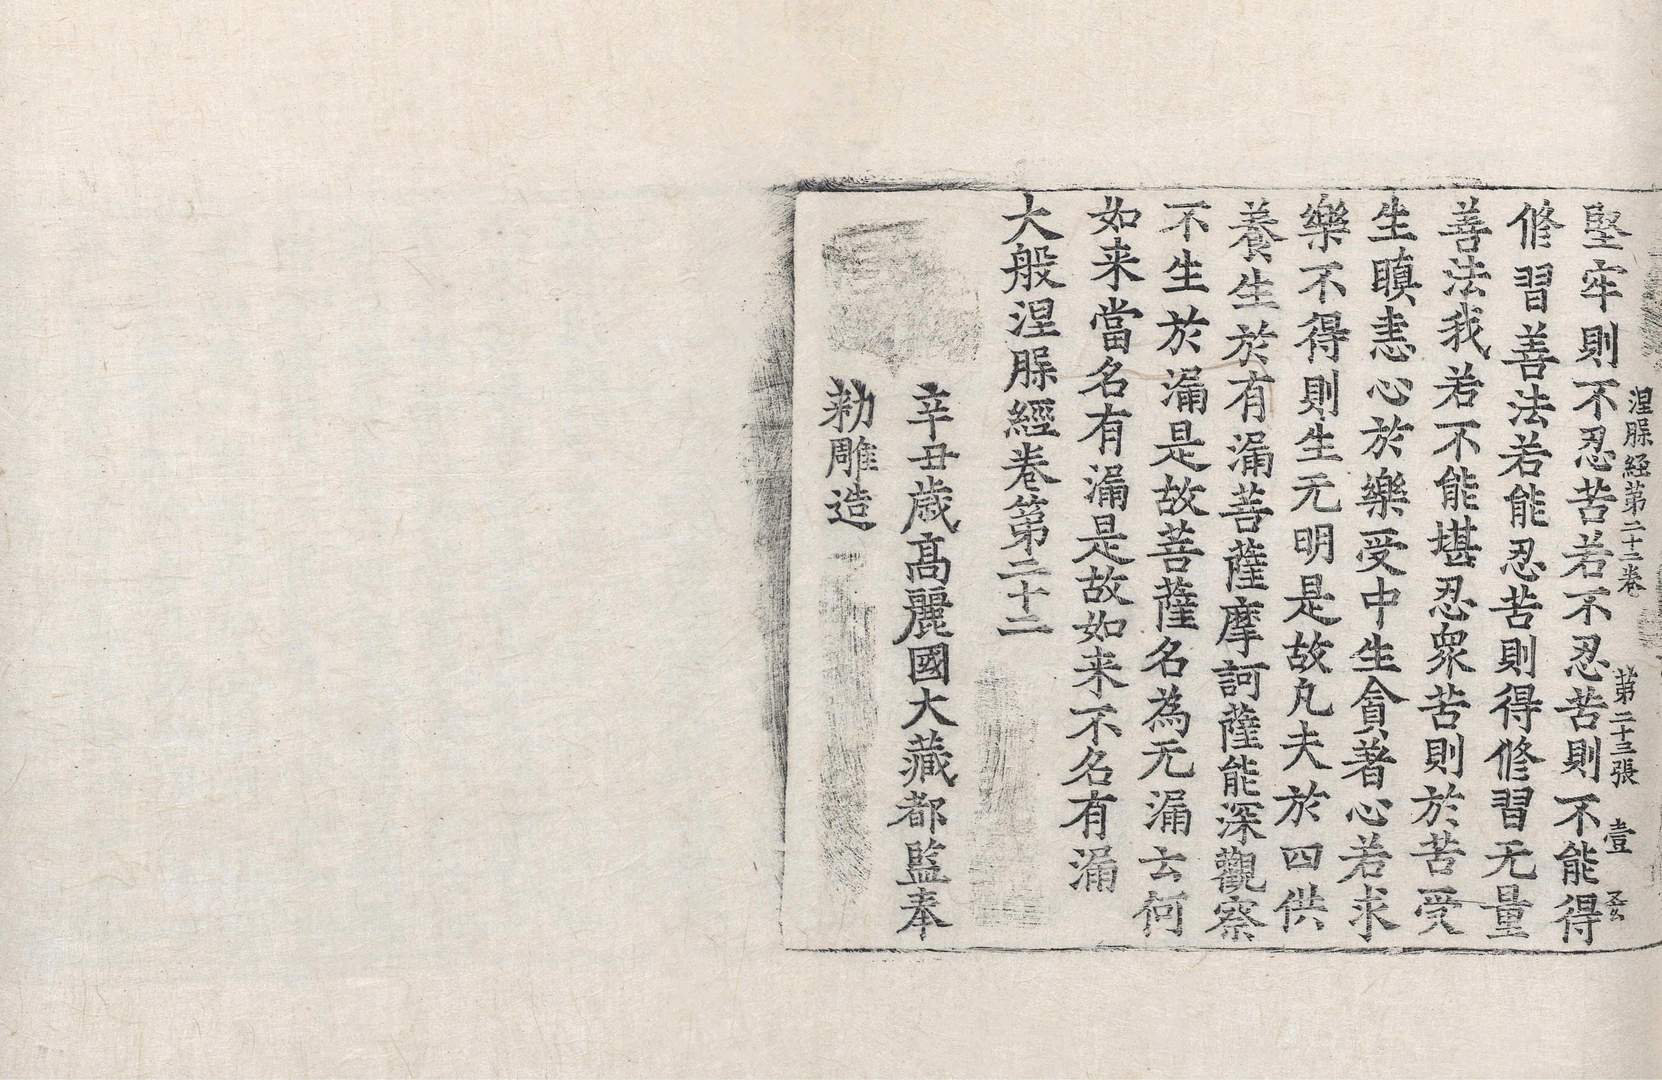 涅脲経第二十二卷 第二十三張 壹
堅牢則不忍苦若不忍苦則不能得
修習善法若能忍苦則得修習无量
善法我若不能堪忍衆苦則於苦受
生瞋恚心於樂受中生貪著心若求
樂不得則生无明是故凡夫於四供
養生於有漏菩薩摩訶薩能深觀察
不生於漏是故菩薩名為无漏云何
如来當名有漏是故如来不名有漏
大般涅脲經卷第二十二
辛丑歳高麗國大藏都監奉
勅雕造